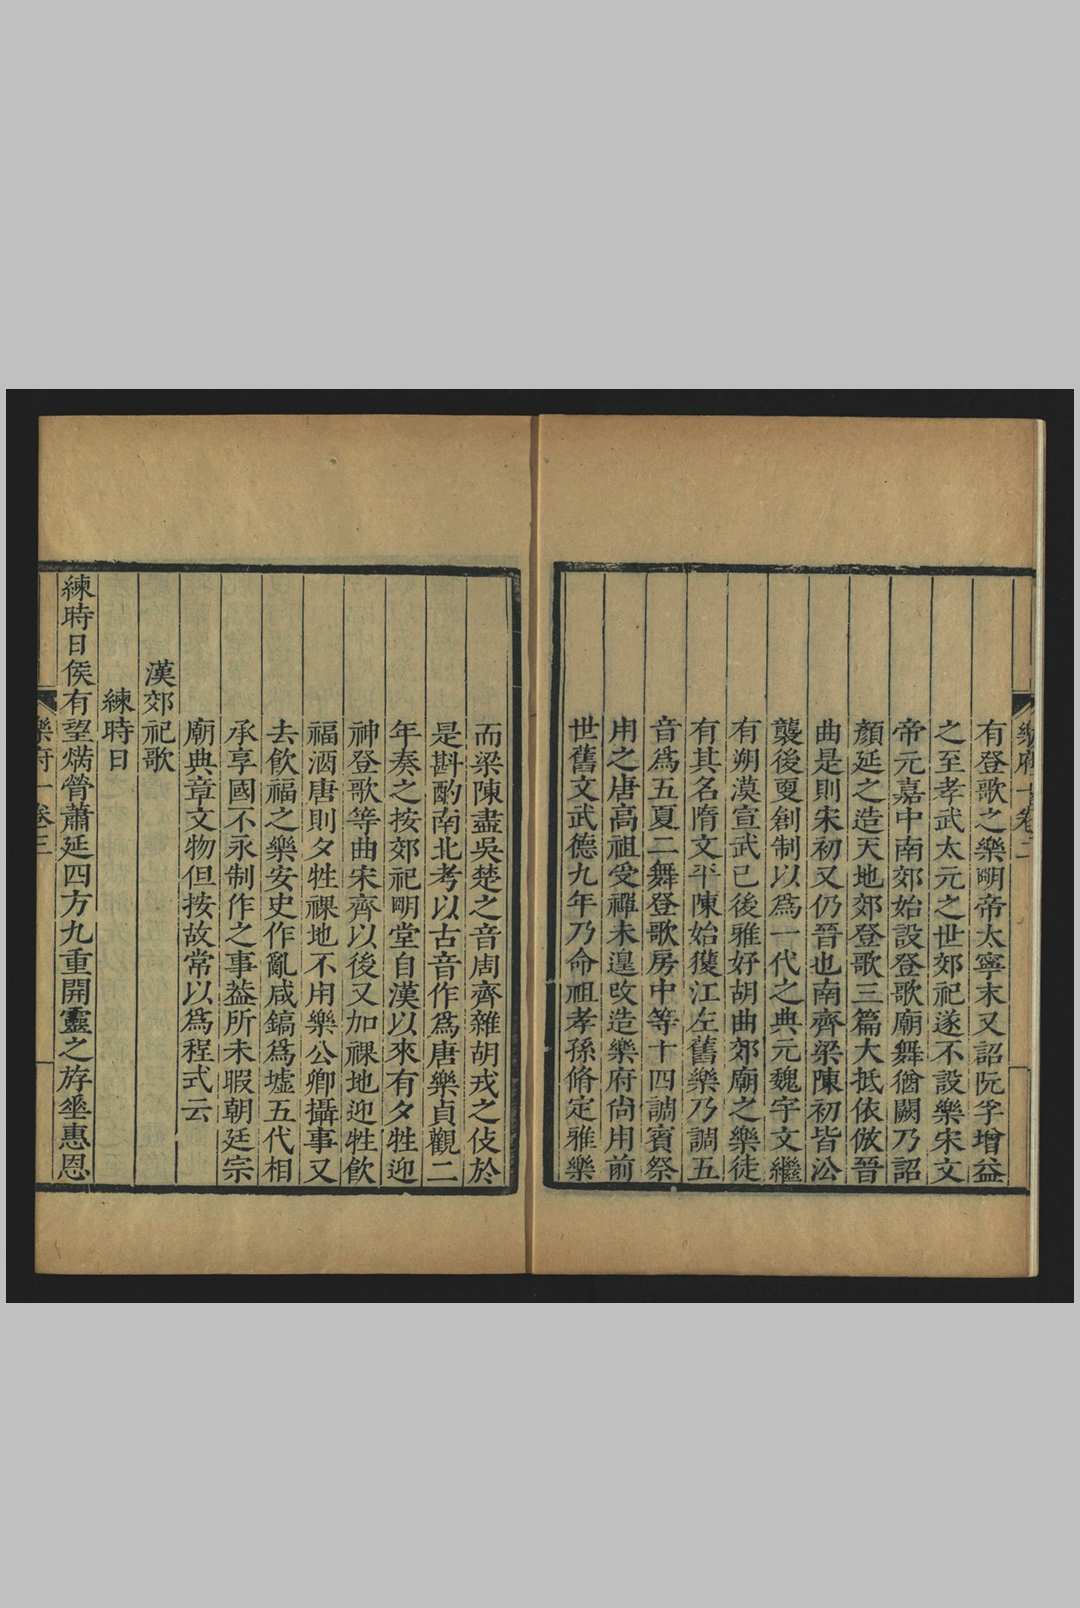 樂府一卷二
有登歌之樂明帝太寧末又詔阮孚增益
之至孝武太元之世郊祀遂不設樂宋文
帝元嘉中南郊始設登歌廟舞猶闕乃詔
顏延之造天地郊登歌三篇大抵依倣晉
曲是則宋初又仍晉也南齊梁陳初皆㳂
襲後更創制以爲一代之典元魏宇文繼
有朔漠宣武已後雅好胡曲郊廟之樂徒
有其名隋文平陳始獲江左舊樂乃調五
音爲五夏二舞登歌房中等十四調賓祭
用之唐高祖受禪未遑改造樂府尚用前
世舊文武德九年乃命祖孝孫脩定雅樂
而梁陳盡吳楚之音周齊雜胡戎之伎於
是斟酌南北考以古音作爲唐樂貞觀二
年奏之按郊祀明堂自漢以來有夕牲迎
神登歌等曲宋齊以後又加祼地迎牲飲
福酒唐則夕牲祼地不用樂公卿攝事又
去飲福之樂安史作亂咸鎬爲墟五代相
承享國不永制作之事葢所未暇朝廷宗
廟典章文物但按故常以爲程式云
漢郊祀歌
練時日
練時日侯有望焫膋蕭延四方九重開靈之斿𡍮惠恩
樂府一卷三